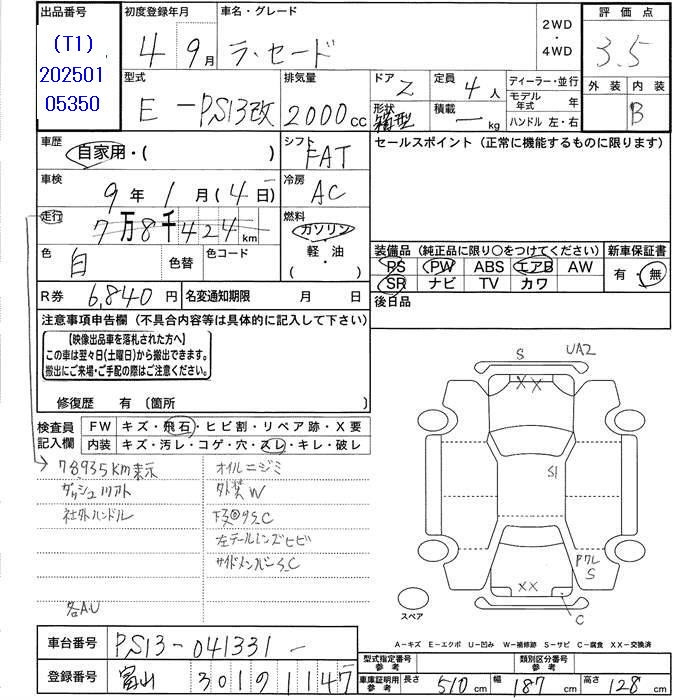 出品番号
(T1)
202501
05350
初度登録年月
4 9月
車名・グレード
ラ・セード
2WD
・
4WD
評価点
3.5
外装 内装
B
型式
E-PS13改
排気量
2000cc
ドア 2
形状 箱型
定員 4人
積載 ー kg
ディーラー・並行
モデル年式 年
ハンドル 左・右
車歴
自家用・( )
シフト
FAT
セールスポイント (正常に機能するものに限ります)
車検
9年1月(4日)
冷房
AC
走行
7万8千424km
燃料
ガソリン
・
軽・油
( )
色
白
色替
色コード
装備品 (純正品に限り○をつけてください)
PS PW ABS エアB AW
SR ナビ TV カワ
新車保証書
有・無
R券 6,840円
名変通知期限 月 日
後日品
注意事項申告欄 (不具合内容等は具体的に記入して下さい)
【映像出品車を落札された方へ】
この車は翌々日(土曜日)から搬出できます。
搬出にご来場・ご手配の際はご注意ください。
修復歴 有 〔箇所 〕
検査員
記入欄
FW キズ・飛石・ヒビ割・リペア跡・X要
内装 キズ・汚レ・コゲ・穴・スレ・キレ・破レ
78935km表示
ダッシュリアト
社外ハンドル
各A.U
オイルニジミ
外装W
下廻◎サS.C
左テールレンズヒビ
サイドメンバーS.C
S
UA2
XX
S1
Pクレ
S
XX
C
スペア
A-キズ E-エクボ U-凹み W-補修跡 S-サビ C-腐食 XX-交換済
車台番号 PS13-041331-
登録番号 富山 301 91 1147
型式指定番号
参考
類別区分番号
参考
車庫証明用
参考
長さ 510cm
幅 187cm
高さ 128cm